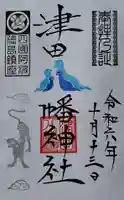 奉拝之証
津田
八幡神社
四國阿波
徳島鎮座
令和六年
十月十三日